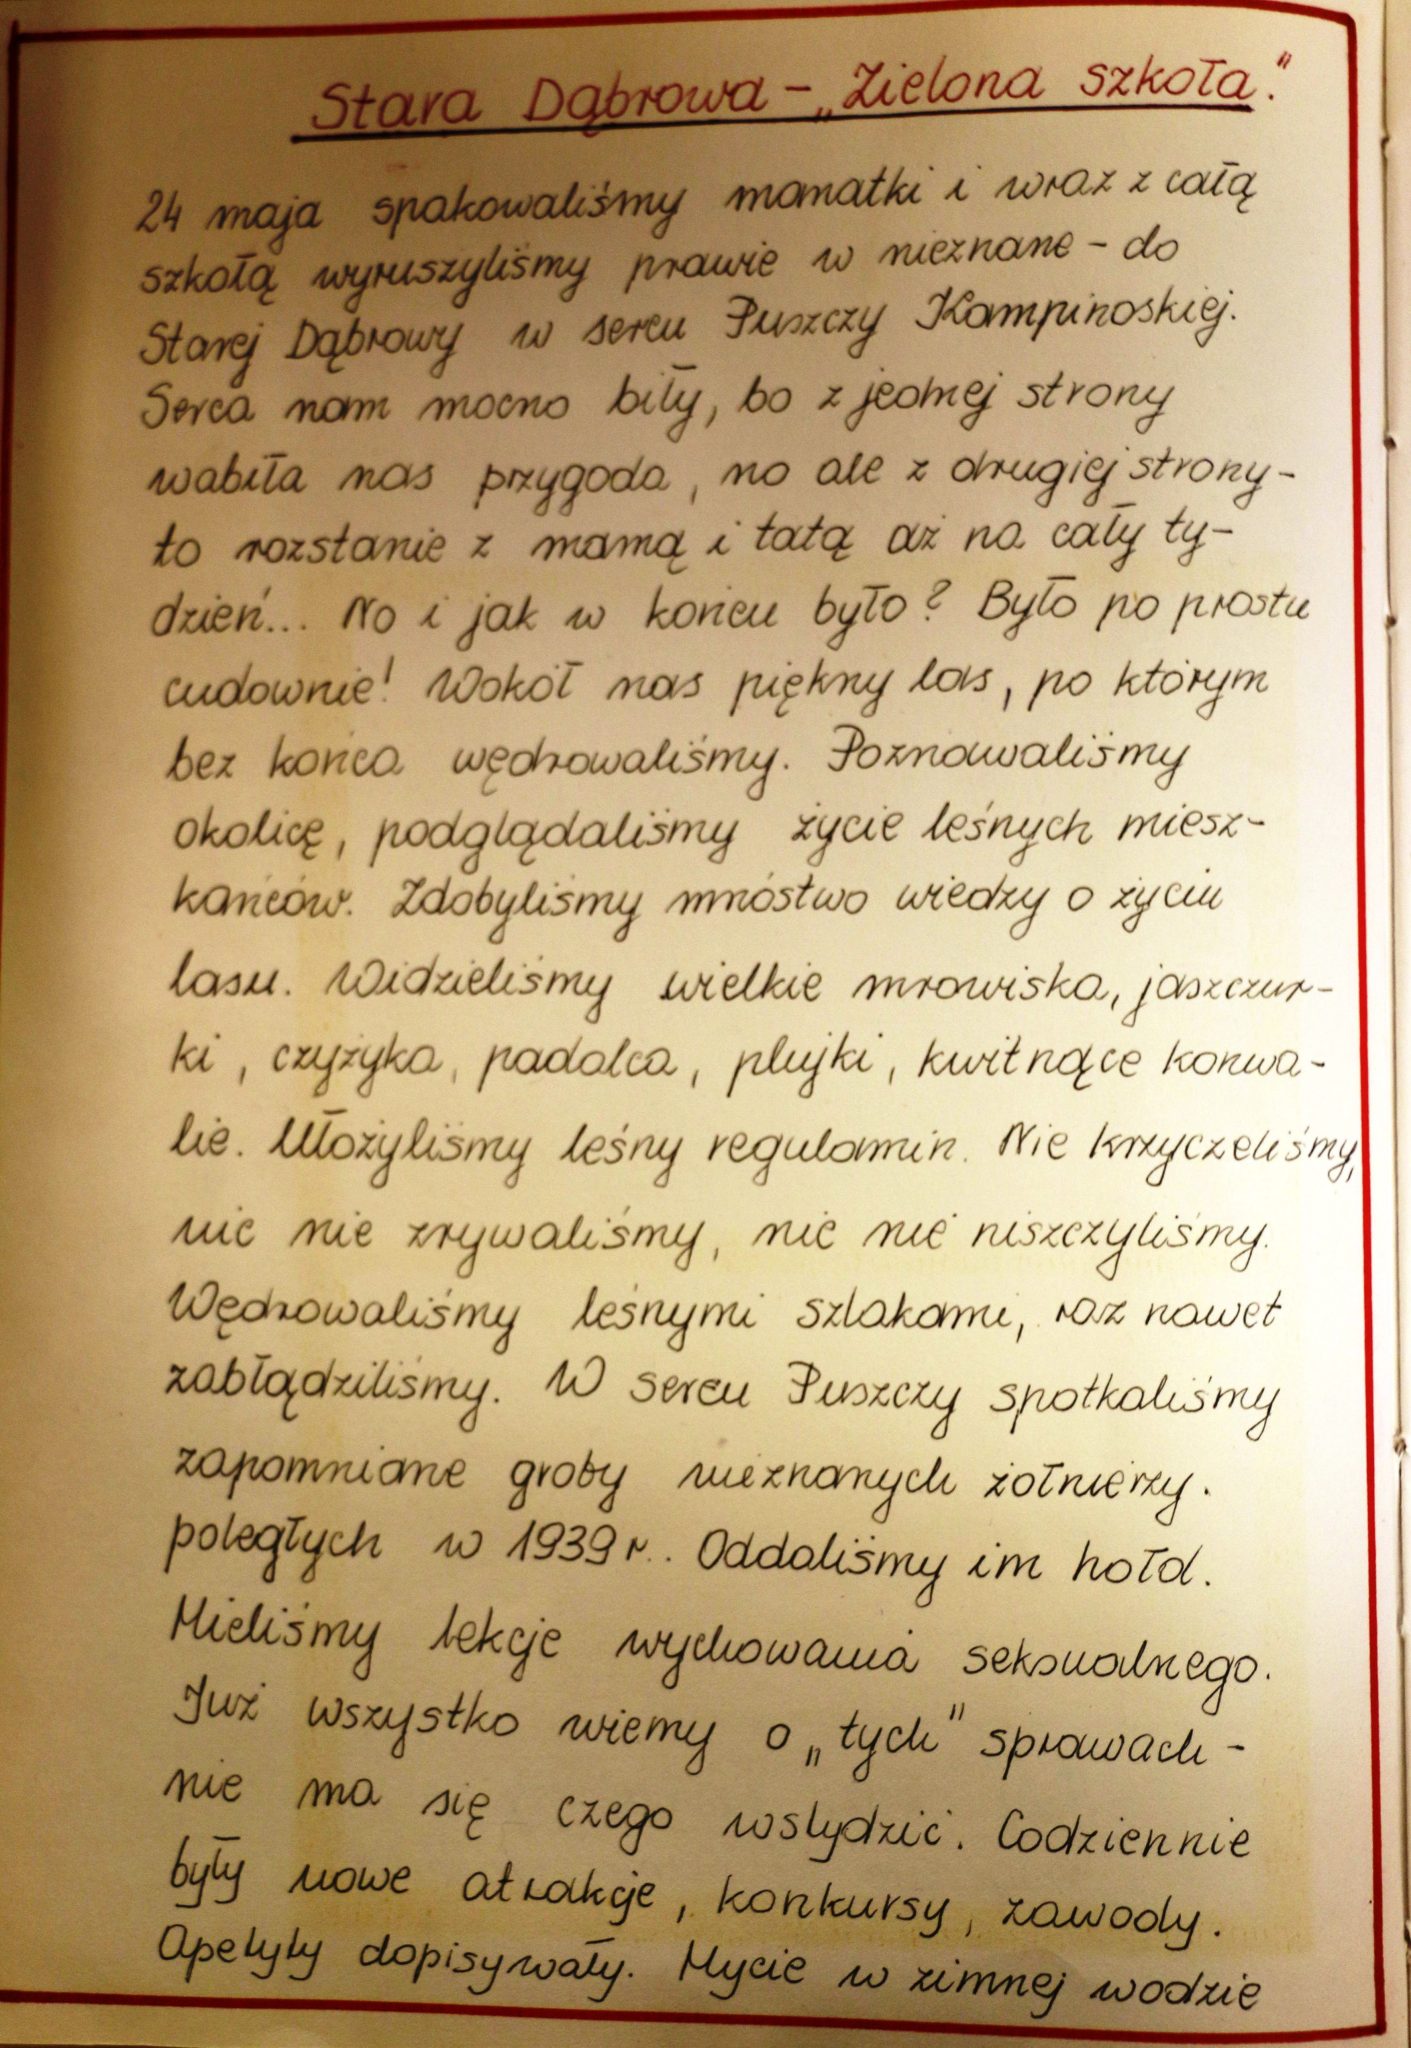 Stara Dąbrowa - „Zielona szkoła."
24 maja spakowaliśmy manatki i wraz z całą
szkołą wyruszyliśmy prawie w nieznane - do
Starej Dąbrowy w sercu Puszczy Kampinoskiej.
Serca nam mocno biły, bo z jednej strony
wabiła nas przygoda, no ale z drugiej strony -
to rozstanie z mamą i tatą aż na cały ty-
dzień... No i jak w końcu było? Było po prostu
cudownie! Wokół nas piękny las, po którym
bez końca wędrowaliśmy. Poznawaliśmy
okolicę, podglądaliśmy życie leśnych miesz-
kańców. Zdobyliśmy mnóstwo wiedzy o życiu
lasu. Widzieliśmy wielkie mrowiska, jaszczur-
ki, czyżyka, padalca, pliszki, kwitnące konwa-
lie. Ułożyliśmy leśny regulamin. Nie krzyczeliśmy,
nic nie zrywaliśmy, nic nie niszczyliśmy.
Wędrowaliśmy leśnymi szlakami, raz nawet
zabłądziliśmy. W sercu Puszczy spotkaliśmy
zapomniane groby nieznanych żołnierzy.
poległych w 1939 r.. Oddaliśmy im hołd.
Mieliśmy lekcje wychowania seksualnego.
Już wszystko wiemy o „tych" sprawach -
nie ma się czego wstydzić. Codziennie
były nowe atrakcje, konkursy, zawody.
Apetyty dopisywały. Mycie w zimnej wodzie